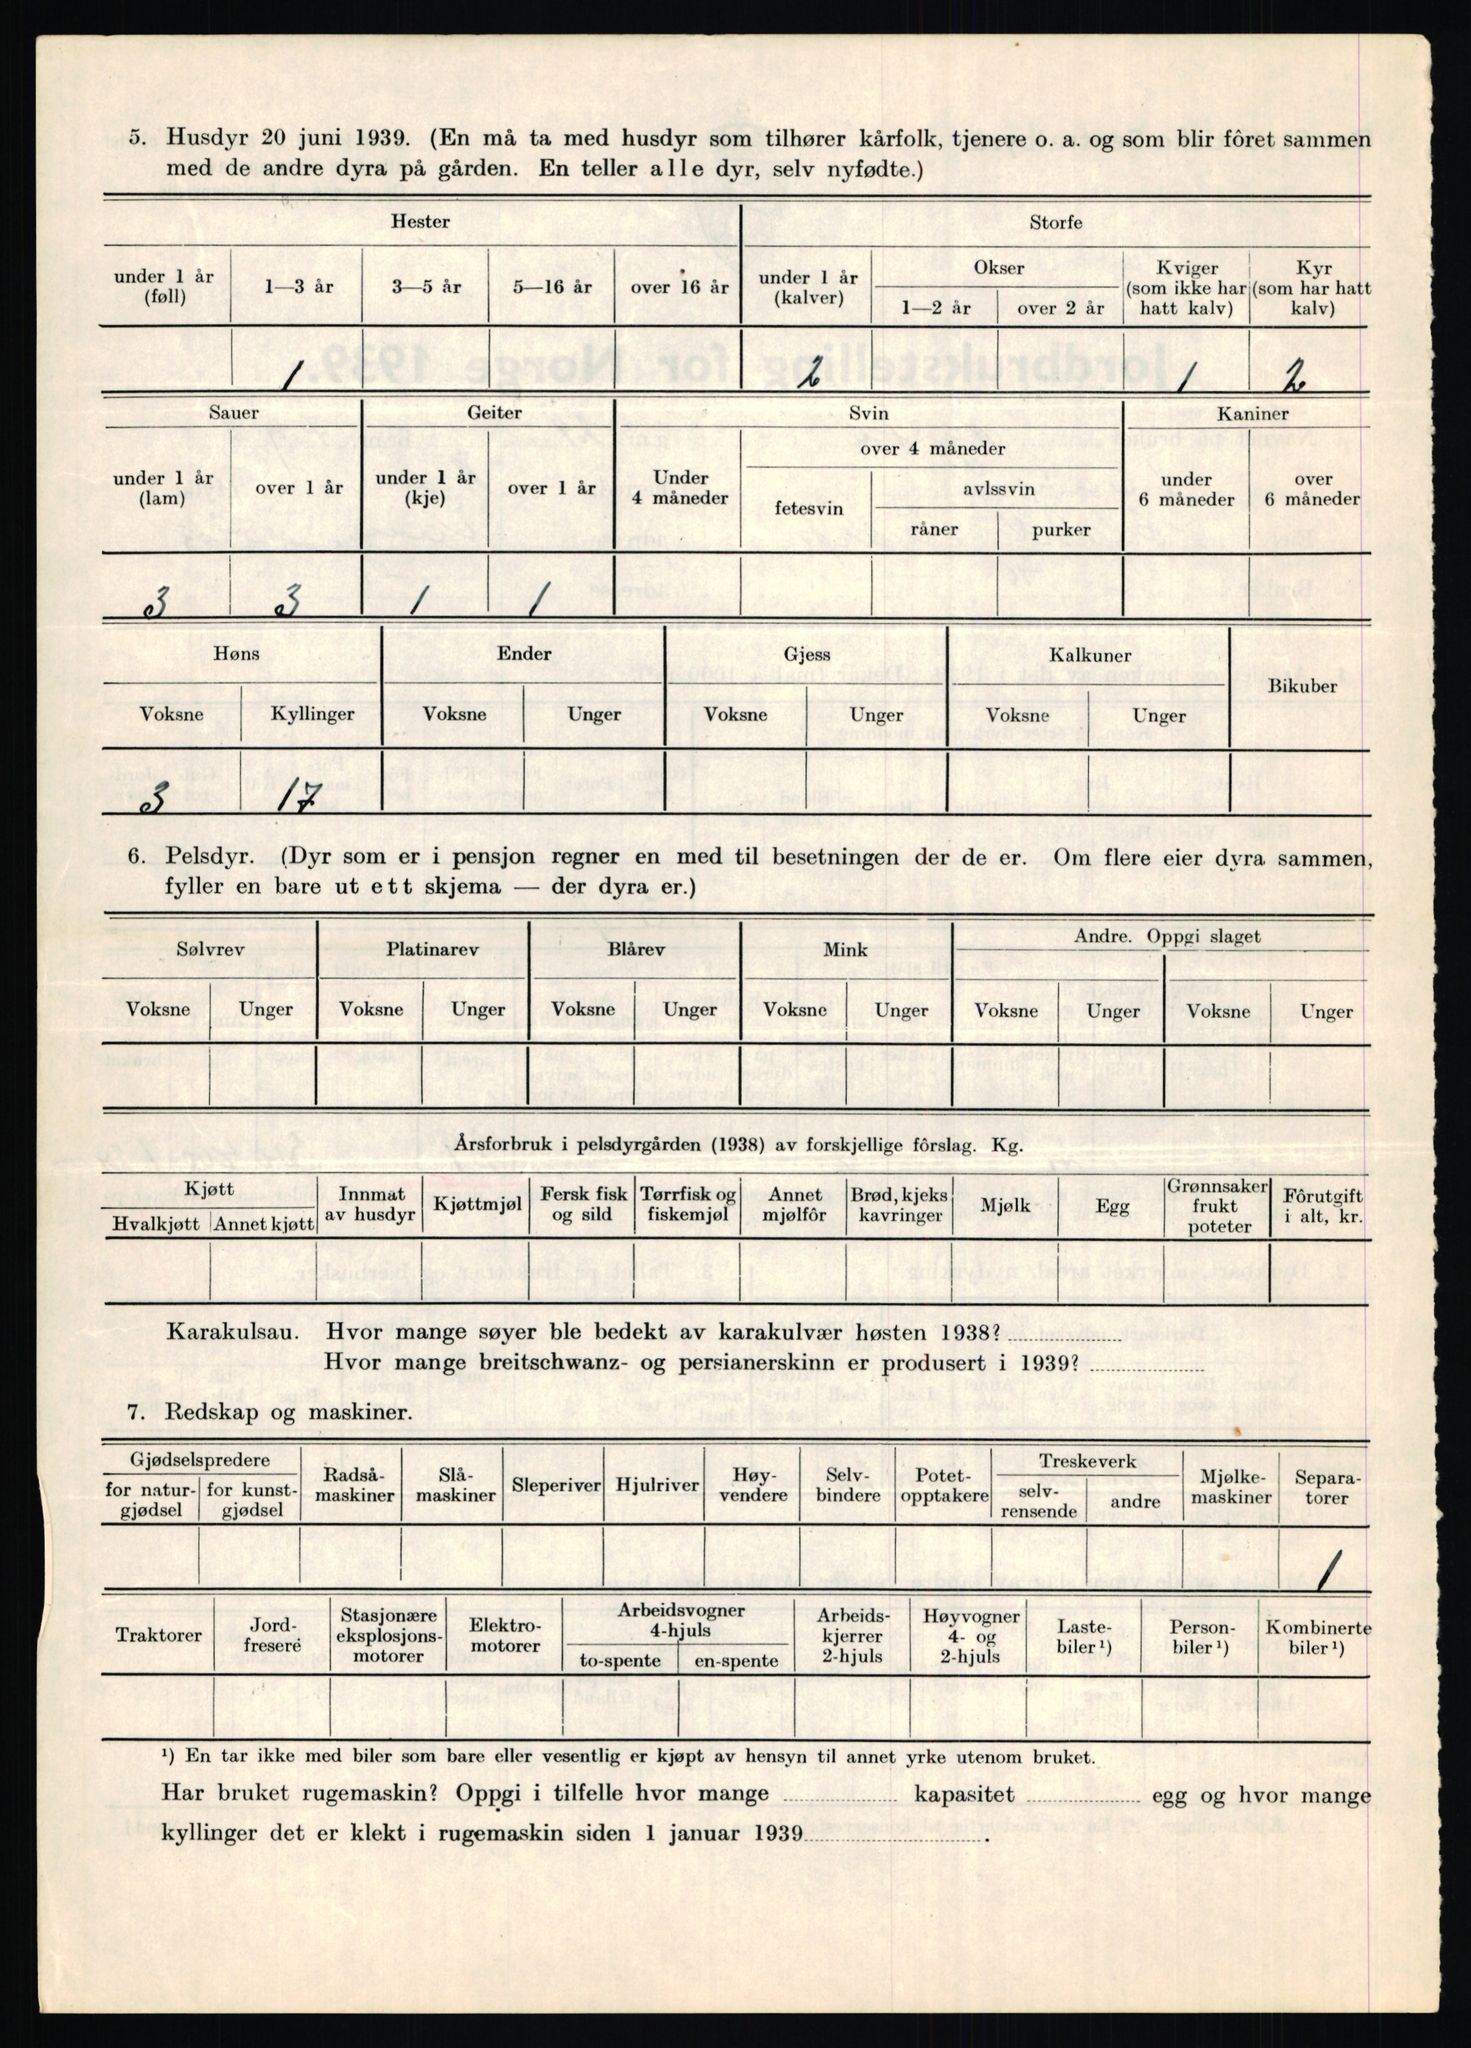 5. Husdyr 20 juni 1939. (En må ta med husdyr som tilhører kårfolk, tjenere o. a. og som blir fôret sammen
med de andre dyra på gården. En teller alle dyr, selv nyfødte.)
Hester Storfe
under 1 år (føll) 1—3 år 3—5 år 5—16 år over 16 år under 1 år (kalver) Okser Kviger (som ikke har hatt kalv) Kyr (som har hatt kalv)
1—2 år over 2 år
1 2 1 2
Sauer Geiter Svin Kaniner
under 1 år (lam) over 1 år under 1 år (kje) over 1 år Under 4 måneder over 4 måneder under 6 måneder over 6 måneder
fetesvin avlssvin
råner purker
3 3 1 1
Høns Ender Gjess Kalkuner Bikuber
Voksne Kyllinger Voksne Unger Voksne Unger Voksne Unger
3 17
6. Pelsdyr. (Dyr som er i pensjon regner en med til besetningen der de er. Om flere eier dyra sammen,
fyller en bare ut ett skjema — der dyra er.)
Sølvrev Platinarev Blårev Mink Andre. Oppgi slaget
Voksne Unger Voksne Unger Voksne Unger Voksne Unger Voksne Unger Voksne Unger
Årsforbruk i pelsdyrgården (1938) av forskjellige fôrslag. Kg.
Kjøtt Innmat av husdyr Kjøttmjøl Fersk fisk og sild Tørrfisk og fiskemjøl Annet mjølfôr Brød, kjeks kavringer Mjølk Egg Grønnsaker frukt poteter Fôrutgift i alt, kr.
Hvalkjøtt Annet kjøtt
Karakulsau. Hvor mange søyer ble bedekt av karakulvær høsten 1938?
Hvor mange breitschwanz- og persianerskinn er produsert i 1939?
7. Redskap og maskiner.
Gjødselspredere Radså-maskiner Slå-maskiner Sleperiver Hjulriver Høy-vendere Selv-bindere Potet-opptakere Treskeverk Mjølke-maskiner Separa-torer
for natur-gjødsel for kunst-gjødsel selv-rensende andre
1
Traktorer Jord-freseré Stasjonære eksplosjons-motorer Elektro-motorer Arbeidsvogner 4-hjuls Arbeids-kjerrer 2-hjuls Høyvogner 4- og 2-hjuls Laste-biler ¹) Person-biler ¹) Kombinerte biler ¹)
to-spente en-spente
¹) En tar ikke med biler som bare eller vesentlig er kjøpt av hensyn til annet yrke utenom bruket.
Har bruket rugemaskin? Oppgi i tilfelle hvor mange kapasitet egg og hvor mange
kyllinger det er klekt i rugemaskin siden 1 januar 1939 .